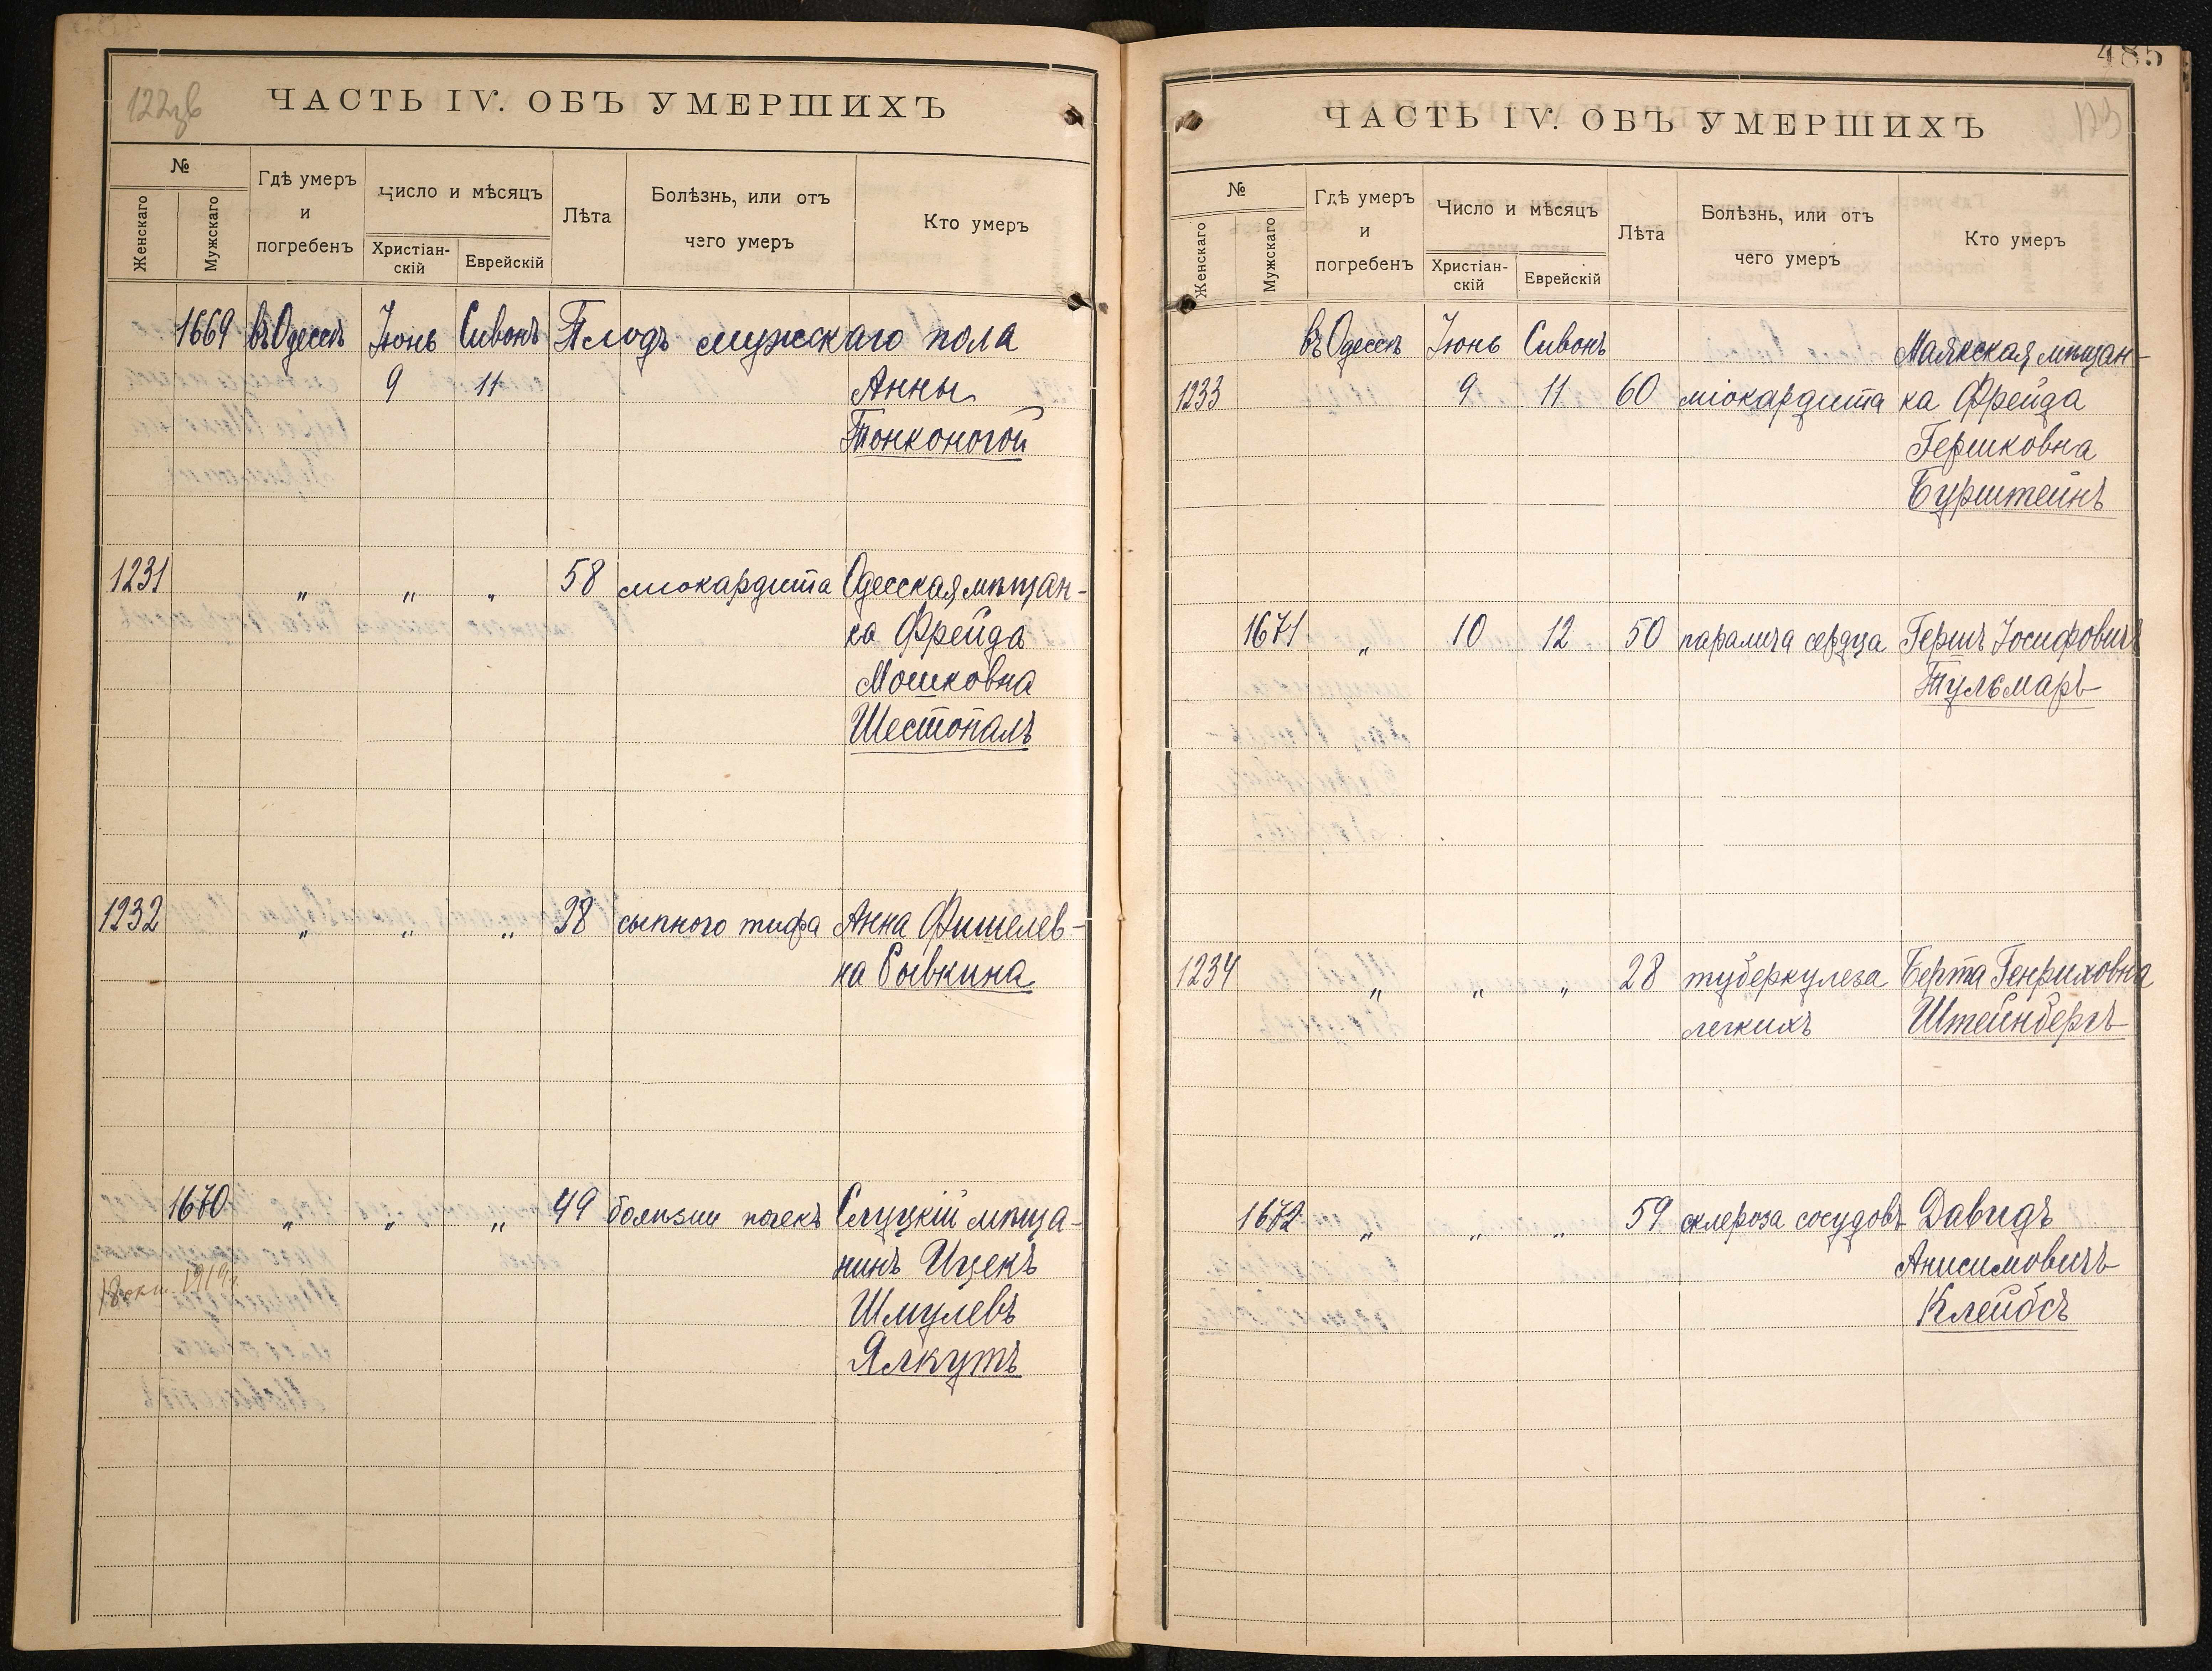 122зв
ЧАСТЬ IV. ОБЪ УМЕРШИХЪ
№
Женскаго
Мужскаго
Гдѣ умеръ
и
погребенъ
Число и мѣсяцъ
Христіан-
скій
Еврейскій
Лѣта
Болѣзнь, или отъ
чего умеръ
Кто умеръ
1669 въ Одессѣ Іюнь Сивонъ Плодъ мужскаго пола
9 11 Анны
Тонконогой
1231 „ „ „ 58 міокардита Одесская мѣщан-
ка Фрейда
Мошковна
Шестопалъ
1232 „ „ „ 38 сыпного тифа Анна Фишелев-
на Сывкина
1670 „ „ „ 49 болѣзни почекъ Слуцкій мѣща-
нинъ Ицекъ
18 окт. 1919г.
Шмулевъ
Ялкутъ
485
123
ЧАСТЬ IV. ОБЪ УМЕРШИХЪ
№
Женскаго
Мужскаго
Гдѣ умеръ
и
погребенъ
Число и мѣсяцъ
Христіан-
скій
Еврейскій
Лѣта
Болѣзнь, или отъ
чего умеръ
Кто умеръ
въ Одессѣ Іюнь Сивонъ Маякская мѣщан-
1233 9 11 60 міокардита ка Фрейда
Гершковна
Бурштейнъ
1671 „ 10 12 50 паралича сердца Гершъ Іосифовичъ
Тульмаръ
1234 „ „ „ 28 туберкулеза Берта Генриховна
легкихъ Штейнбергъ
1672 „ „ „ 59 склероза сосудовъ Давидъ
Анисимовичъ
Клейбсъ